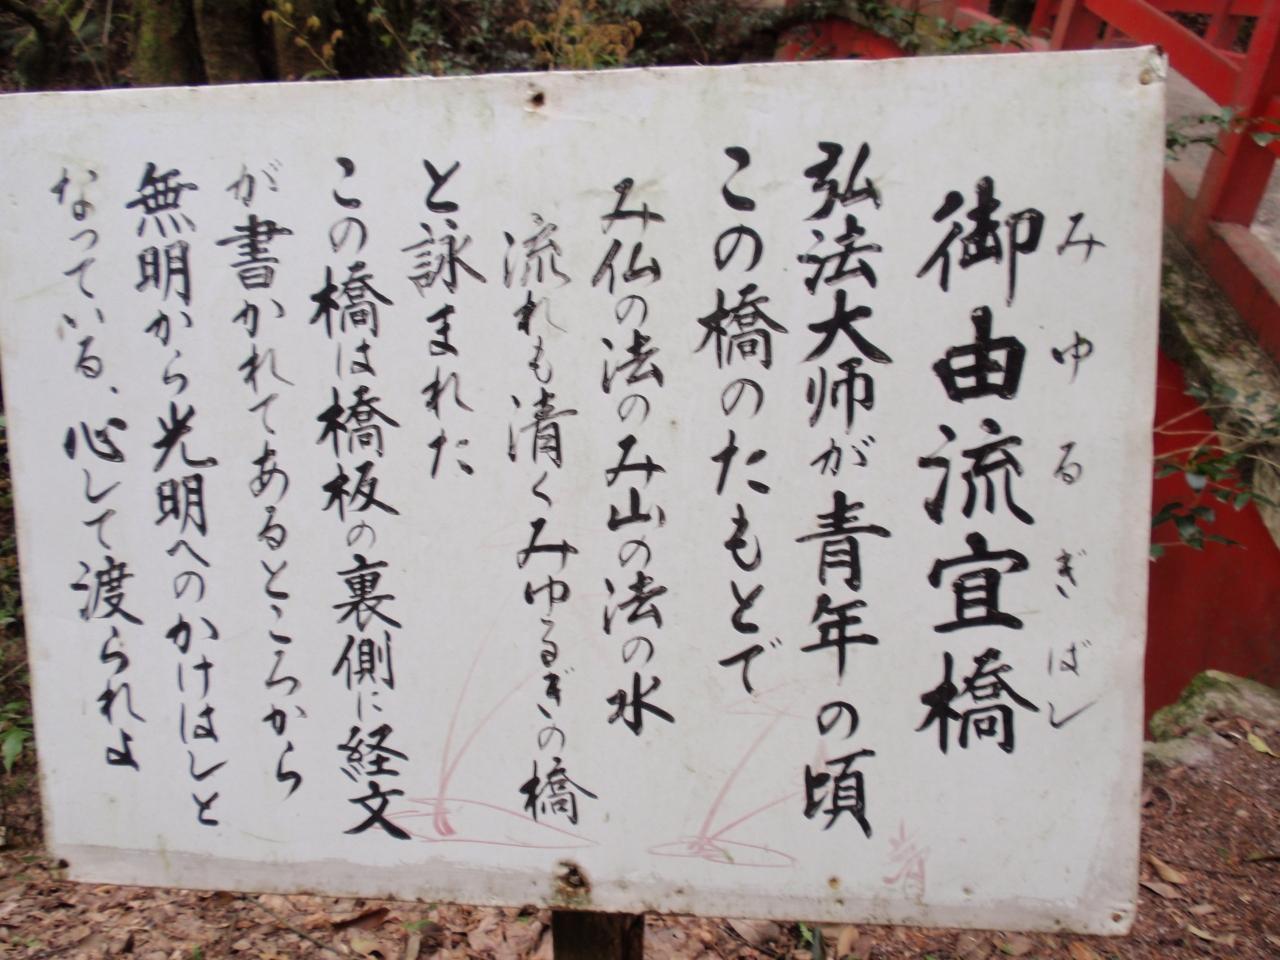 御由流宜橋
みゆるぎばし
弘法大师が青年の頃
この橋のたもとで
み仏の法のみ山の法の水
流れも清くみゆるぎの橋
と詠まれた
この橋は橋板の裏側に経文
が書かれてあるところから
無明から光明へのかけはしと
なっている、心して渡られよ